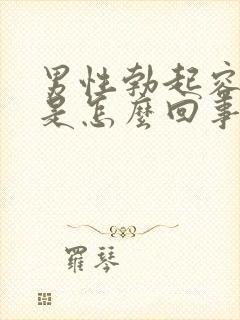 男性勃起容
是怎麼回事
羅琴